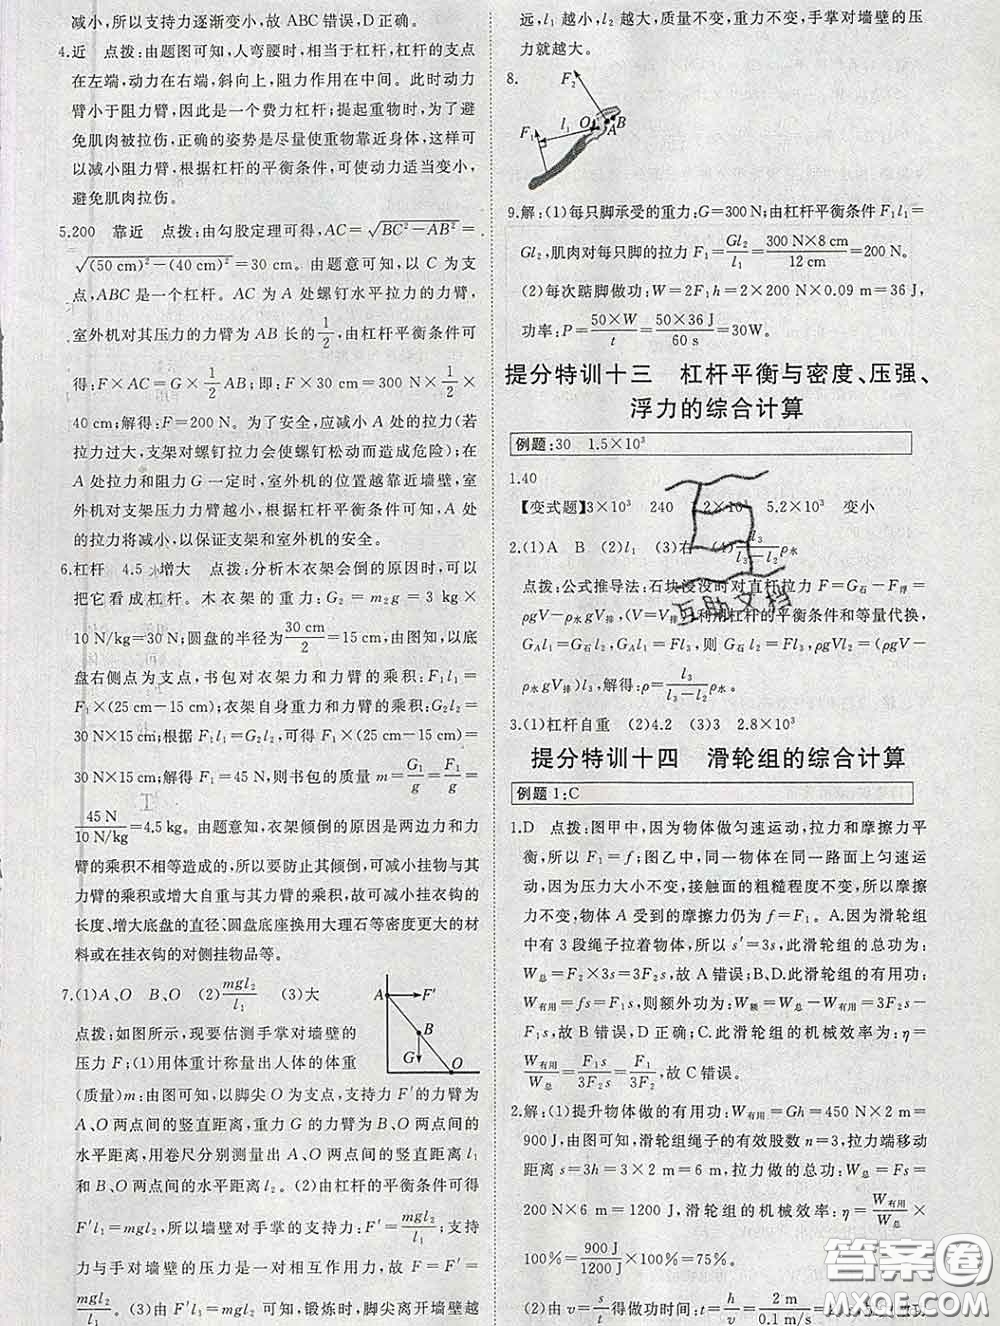 减小,所以支持力逐渐变小,故 ABC 错误,D 正确。
4.近 点拨:由题图可知,人弯腰时,相当于杠杆,杠杆的支点
在左端,动力在右端,斜向上,阻力作用在中间。此时动力
臂小于阻力臂,因此是一个费力杠杆;提起重物时,为了避
免肌肉被拉伤,正确的姿势是尽量使重物靠近身体,这样可
以减小阻力臂,根据杠杆的平衡条件,可使动力适当变小,
避免肌肉拉伤。
5.200 靠近 点拨:由勾股定理可得,AC=√(BC²-AB²)=
√((50 cm)²-(40 cm)²)=30 cm。由题意可知,以 C 为支
点,ABC 是一个杠杆。AC 为 A 处螺钉水平拉力的力臂,
室外机对其压力的力臂为 AB 长的1/2,由杠杆平衡条件可
得:F×AC=G×1/2AB;即:F×30 cm=300 N×1/2×
40 cm;解得:F=200 N。为了安全,应减小 A 处的拉力(若
拉力过大,支架对螺钉拉力会使螺钉松动而造成危险);在
A 处拉力和阻力 G 一定时,室外机的位置越靠近墙壁,室
外机对支架压力力臂越小,根据杠杆平衡条件可知,A 处
的拉力将减小,以保证支架和室外机的安全。
6.杠杆 4.5 增大 点拨:分析木衣架会倒的原因时,可以
把它看成杠杆。木衣架的重力:G₂=m₂g=3 kg×
10 N/kg=30 N;圆盘的半径为30 cm/2=15 cm,由图知,以底
盘右侧点为支点,书包对衣架力和力臂的乘积:F₁l₁=
F₁×(25 cm-15 cm);衣架自身重力和力臂的乘积:G₂l₂=
30 N×15 cm;根据 F₁l₁=G₂l₂,可得 F₁×(25 cm-15 cm)=
30 N×15 cm;解得 F₁=45 N,则书包的质量 m=G₁/g=F₁/g=
45 N/10 N/kg=4.5 kg。由题意知,衣架倾倒的原因是两边力和力
臂的乘积不相等造成的,所以要防止其倾倒,可减小挂物与其
力臂的乘积或增大自重与其力臂的乘积,故可减小挂衣钩的
长度、增大底盘的直径、圆盘底座换用大理石等密度更大的材
料或在挂衣钩的对侧挂物品等。
7.(1)A、O B、O (2)mgl₂/l₁ (3)大
A F′
B
G O
点拨:如图所示,现要估测手掌对墙壁的
压力 F;(1)用体重计称量出人体的体重
(质量)m;由图可知,以脚尖 O 为支点,支持力 F′的力臂为
A、O 两点间的竖直距离,重力 G 的力臂为 B、O 两点间的
水平距离,用卷尺分别测量出 A、O 两点间的竖直距离 l₁
和 B、O 两点间的水平距离 l₂。(2)由杠杆的平衡条件可得
F′l₁=mgl₂,所以墙壁对手掌的支持力:F′=mgl₂/l₁;支持
力与手对墙壁的压力是一对相互作用力,故 F=F′=
mgl₂/l₁。(3)由题意可知,锻炼时,脚尖离开墙壁越
远,l₁ 越小,l₂ 越大,质量不变,重力不变,手掌对墙壁的压
力就越大。
8.
F₂
F₁ l₁ O A B
9.解:(1)每只脚承受的重力:G=300 N;由杠杆平衡条件 F₁l₁=
Gl₂,肌肉对每只脚的拉力 F₁=Gl₂/l₁=300 N×8 cm/12 cm=200 N。
(2)每次踮脚做功:W=2F₁h=2×200 N×0.09 m=36 J,
功率:P=50×W/t=50×36 J/60 s=30W。
提分特训十三 杠杆平衡与密度、压强、
浮力的综合计算
例题:30 1.5×10³
1.40
【变式题】3×10³ 240 2×10³ 5.2×10³ 变小
2.(1)A B (2)l₁ (3)右 (4)l₃/(l₃-l₂)ρ水
点拨:公式推导法:石块浸没时对直杆拉力 F=G石-F浮=
ρgV-ρ水gV排,利用杠杆的平衡条件和等量代换,
G_A l₁=G石l₂,G_A l₁=Fl₃,则 G石l₂=Fl₃,ρgVl₂=(ρgV-
ρ水gV排)l₃,解得:ρ=l₃/(l₃-l₂)ρ水。
3.(1)杠杆自重 (2)4.2 (3)3 2.8×10³
提分特训十四 滑轮组的综合计算
例题 1:C
1.D 点拨:图甲中,因为物体做匀速运动,拉力和摩擦力平
衡,所以 F₁=f;图乙中,同一物体在同一路面上匀速运
动,因为压力大小不变,接触面的粗糙程度不变,所以摩擦
力不变,物体 A 受到的摩擦力仍为 f=F₁。A.因为滑轮组
中有 3 段绳子拉着物体,所以 s′=3s,此滑轮组的总功为:
W总=F₂×3s=3F₂s,故 A 错误;B、D.此滑轮组的有用功:
W有用=fs=F₁s,则额外功为:W额=W总-W有用=3F₂s-
F₁s,故 B 错误,D 正确;C.此滑轮组的机械效率为:η=
W有用/W总=F₁s/3F₂s=F₁/3F₂,故 C 错误。
2.解:(1)提升物体做的有用功:W有用=Gh=450 N×2 m=
900 J,由图可知,滑轮组绳子的有效股数 n=3,拉力端移动
距离 s=3h=3×2 m=6 m,拉力做的总功:W总=Fs=
200 N×6 m=1200 J,滑轮组的机械效率:η=W有用/W总×
100%=900 J/1200 J×100%=75%。
(2)由 v=s/t得做功时间:t=h/v=2 m/0.1 m/s=
互助文档
答案圈